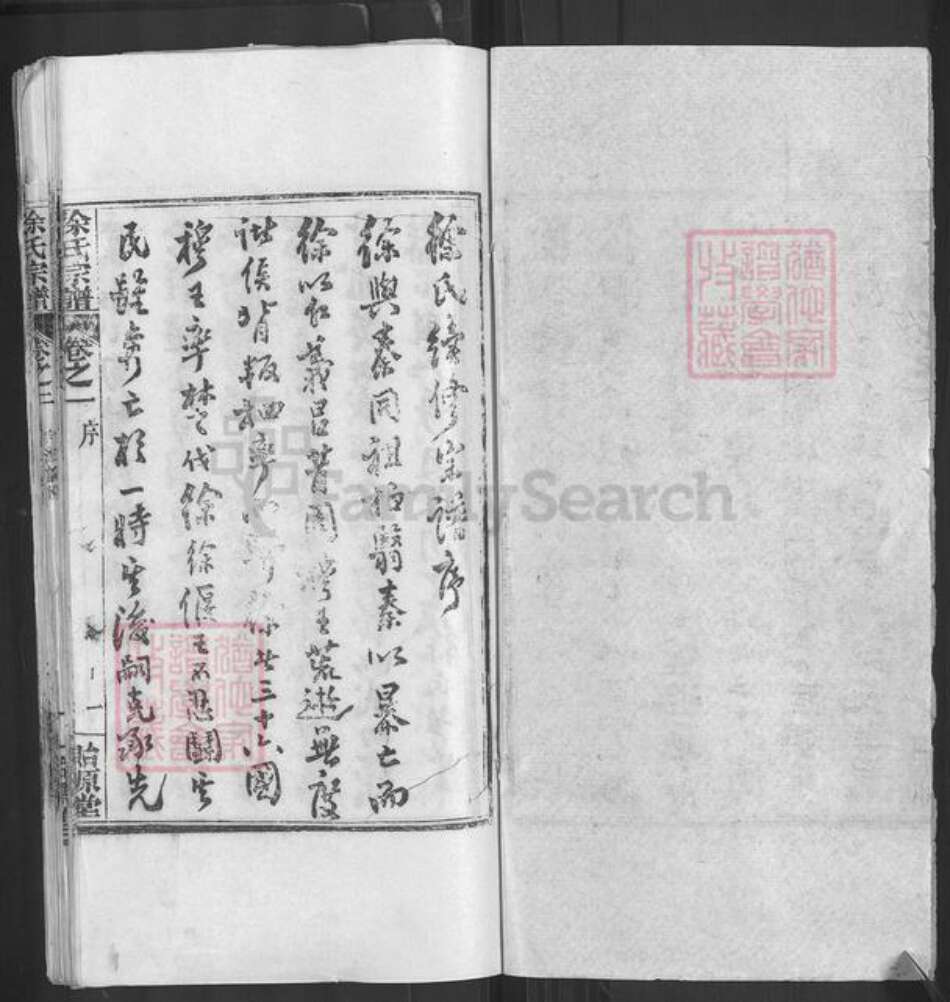 徐氏續修宗譜序
徐與秦同祖柏翳秦以暴亡而
徐以仁義昌昔周穆王荒遊無度
諸侯背叛相率
三十六國
穆王率楚伐徐徐偃王不忍鬬其
民雖亡於一時其後嗣克承先
徐氏宗譜
卷之一
序
一
貽原堂
徐氏宗譜
卷之二
FamilySearch